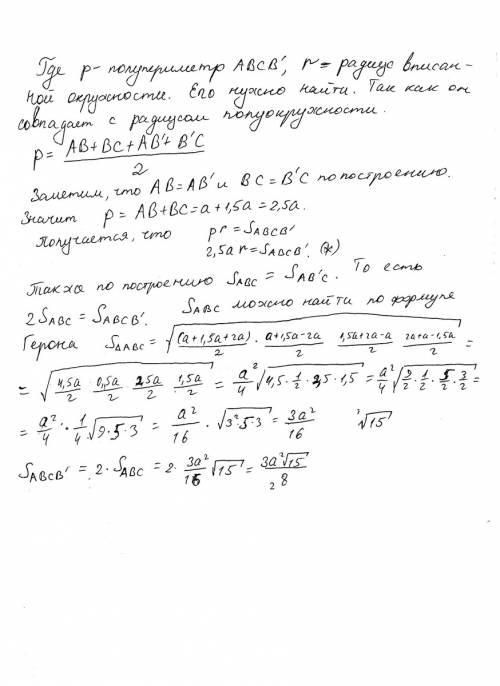 Где p - полупериметр ABCB', r = радиус вписан-
ной окружности. Его нужно найти. Так как он
совпадает с радиусом полуокружности.
p = (AB + BC + AB' + B'C)/2
Заметим, что AB = AB' и BC = B'C по построению.
Значит p = AB + BC = a + 1,5a = 2,5a.
Получается, что pr = S_ABCB'
2,5a r = S_ABCB'. (*)
Также по построению S_ABC = S_AB'C. То есть
2S_ABC = S_ABCB'. S_ABC можно найти по формуле
Герона S_ΔABC = √((a+1,5a+2a)/2 · (a+1,5a-2a)/2 · (1,5a+2a-a)/2 · (2a+a-1,5a)/2) =
= √(4,5a/2 · 0,5a/2 · 2,5a/2 · 1,5a/2) = a²/4 √(4,5 · 1/2 · 2,5 · 1,5) = a²/4 √(9/2 · 1/2 · 5/2 · 3/2) =
= a²/4 · 1/4 √(9·5·3) = a²/16 · √(3²·5·3) = 3a²/16 √15
S_ABCB' = 2 · S_ABC = 2 · 3a²/16 √15 = 3a²√15/8